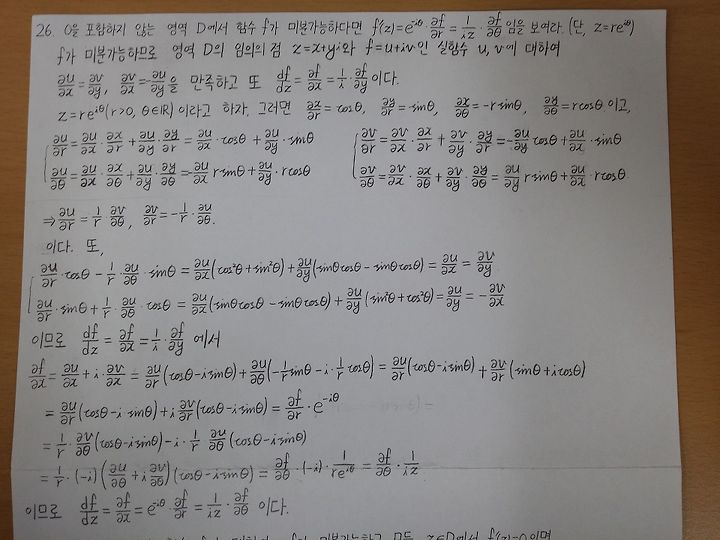 26. 0을 포함하지 않는 영역 D에서 함수 f가 미분가능하다면 f'(z)=e^{-iθ}·∂f/∂r=1/(iz)·∂f/∂θ 임을 보여라. (단, z=re^{iθ})
f가 미분가능하므로 영역 D의 임의의 점 z=x+yi와 f=u+iv인 실함수 u, v에 대하여
∂u/∂x=∂v/∂y, ∂v/∂x=-∂u/∂y을 만족하고 또 df/dz=∂f/∂x=1/i·∂f/∂y 이다.
z=re^{iθ}(r>0, θ∈ℝ)이라고 하자. 그러면 ∂x/∂r=cosθ, ∂y/∂r=sinθ, ∂x/∂θ=-rsinθ, ∂y/∂θ=rcosθ 이고,
∂u/∂r=∂u/∂x·∂x/∂r+∂u/∂y·∂y/∂r=∂u/∂x·cosθ+∂u/∂y·sinθ ∂v/∂r=∂v/∂x·∂x/∂r+∂v/∂y·∂y/∂r=-∂u/∂y cosθ+∂u/∂x·sinθ
∂u/∂θ=∂u/∂x·∂x/∂θ+∂u/∂y·∂y/∂θ=-∂u/∂x rsinθ+∂u/∂y·rcosθ ∂v/∂θ=∂v/∂x·∂x/∂θ+∂v/∂y·∂y/∂θ=∂u/∂y rsinθ+∂u/∂x·rcosθ
⇒∂u/∂r=1/r ∂v/∂θ, ∂v/∂r=-1/r·∂u/∂θ.
이다. 또,
∂u/∂r·cosθ-1/r·∂u/∂θ·sinθ=∂u/∂x(cos²θ+sin²θ)+∂u/∂y(sinθcosθ-sinθcosθ)=∂u/∂x=∂v/∂y
∂u/∂r·sinθ+1/r·∂u/∂θ·cosθ=∂u/∂x(sinθcosθ-sinθcosθ)+∂u/∂y(sin²θ+cos²θ)=∂u/∂y=-∂v/∂x
이므로 df/dz=∂f/∂x=1/i·∂f/∂y 에서
∂f/∂x=∂u/∂x+i·∂v/∂x=∂u/∂r(cosθ-isinθ)+∂u/∂θ(-1/r sinθ-i·1/r cosθ)=∂u/∂r(cosθ-isinθ)+∂v/∂r(sinθ+icosθ)
=∂u/∂r(cosθ-i sinθ)+i∂v/∂r(cosθ-isinθ)=∂f/∂r·e^{-iθ}
=1/r·∂v/∂θ(cosθ-isinθ)-i·1/r ∂u/∂θ(cosθ-isinθ)
=1/r·(-i)(∂u/∂θ+i∂v/∂θ)(cosθ-isinθ)=∂f/∂θ·(-i)·1/(re^{iθ})=∂f/∂θ·1/(iz)
이므로 df/dz=∂f/∂x=e^{-iθ}·∂f/∂r=1/(iz)·∂f/∂θ 이다.